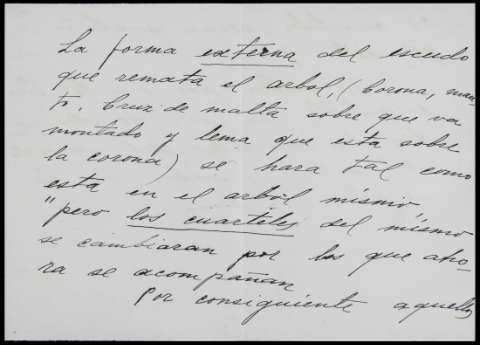 La forma externa del escudo
que remata el arbol, (Corona, man-
to, Cruz de malta sobre que va
montado y lema que esta sobre
la corona) se hara tal como
esta en el arbol mismo
"pero los cuarteles del mismo
se cambiaran por los que aho-
ra se acompañan
Por consiguiente aquellos